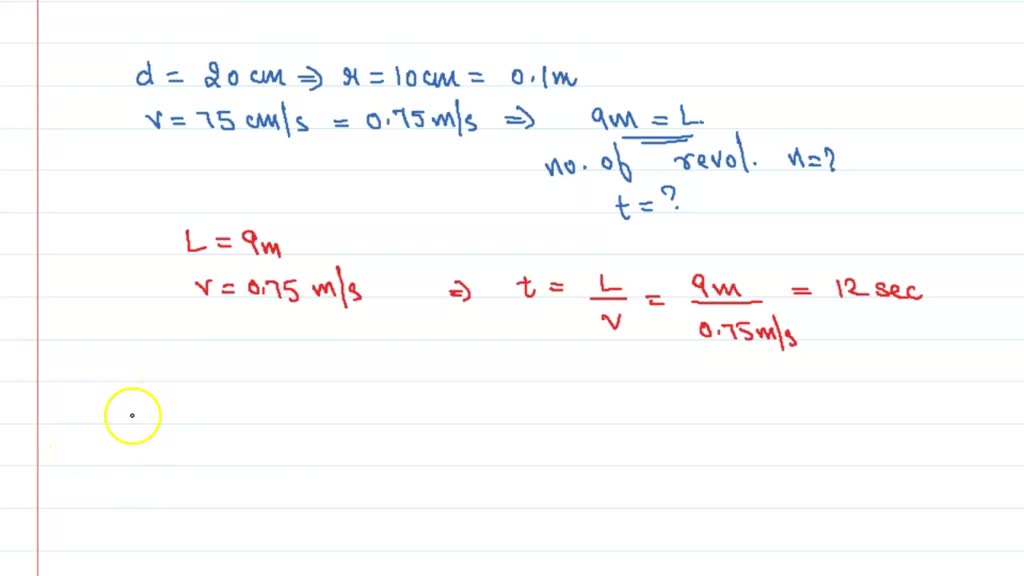 d = 20 cm ⇒ r = 10 cm = 0.1 m
v = 75 cm/s = 0.75 m/s ⇒ 9m = L.
no. of revol. n=?
t = ?
L = 9m
v = 0.75 m/s ⇒ t = L/v = 9m/0.75 m/s = 12 sec